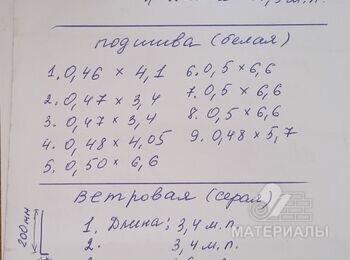 подшива (белая)
1. 0,46 × 4,1
2. 0,47 × 3,4
3. 0,47 × 3,4
4. 0,48 × 4,05
5. 0,50 × 6,6
6. 0,5 × 6,6
7. 0,5 × 6,6
8. 0,5 × 6,6
9. 0,48 × 5,7
Ветровая (серая)
200мм
1. Длина: 3,4 м.п.
2. 3,4 м.п.
МАТЕРИАЛЫ